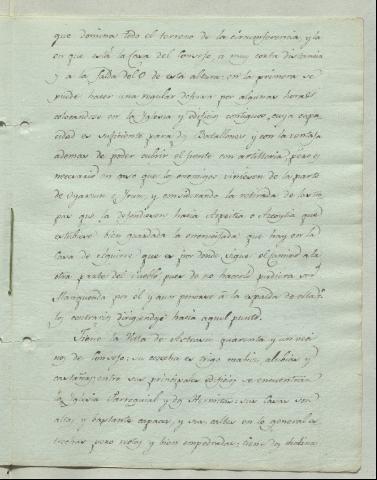 que domina todo el terreno de la circunferencia, y la
en que está la Casa del Consejo, a muy corta distancia
y a la salida del O de esta altura: en la primera se
puede hacer una regular defensa por algunas horas
colocandose en la Yglesia y edificios contiguos, cuya capa
cidad es suficiente para dos Batallones y con la ventaja
ademas de poder cubrir el frente con artilleria; pero es
necesario en caso que los enemigos viniesen de la parte
de Oyarzun e Yrun, y considerando la retirada de las tro
pas que la defendiesen hacia Azpeitia o Azcoytia que
estubiese bien guardada la encrucijada que hay en la
Casa de que es por donde sigue el camino a la
otra parte del Pueblo pues de no hacerlo pudiera ser
flanqueada por el y aun ponerse a la espalda de ella
los contrarios dirigiendose hacia aquel punto.
Tiene la Villa de quarenta y un veci
nos de Consejo: su cosecha es trigo, maiz, alubias y
castañas; entre sus principales edificios se encuentran
la Yglesia Parroquial y dos Hermitas: sus Casas son
altas y bastante capaces, y sus calles en lo general es
trechas pero rectas y bien empedradas: tiene dos